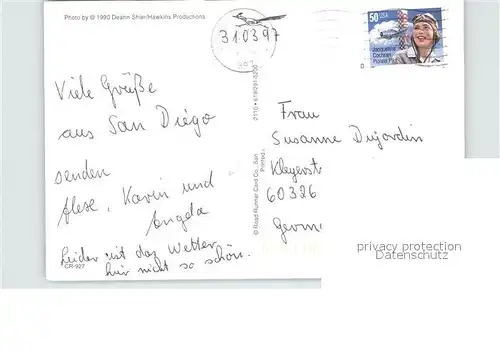 Photo by © 1990 Deann Shier/Hawkins Productions
31.03.97
50 USA
Jacqueline
Cochran
Pioneer Pilot
Viele Grüße
aus San Diego
senden
Karin und
Angela
Leider ist das Wetter
hier nicht so schön.
CR-927
© Road Runner Card Co., San
Printed
Frau
Susanne Dujardin
60326
Germ
privacy protection
Datenschutz